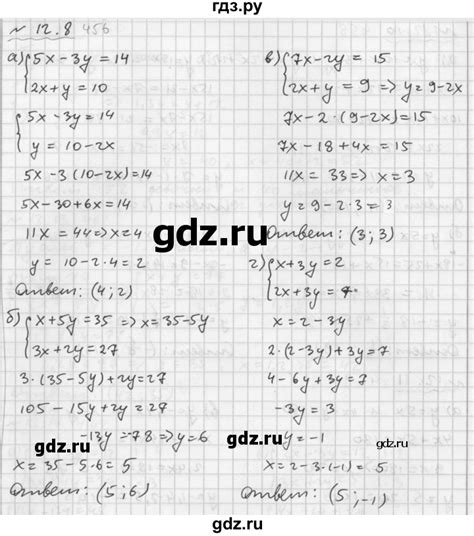 гдз.ру
№ 12.8 456
а) {5x - 3y = 14
2x + y = 10
{5x - 3y = 14
y = 10 - 2x
5x - 3(10 - 2x) = 14
5x - 30 + 6x = 14
11x = 44 => x = 4
y = 10 - 2·4 = 2
Ответ: (4; 2)
б) {x + 5y = 35 => x = 35 - 5y
3x + 2y = 27
3·(35 - 5y) + 2y = 27
105 - 15y + 2y = 27
-13y = -78 => y = 6
x = 35 - 5·6 = 5
Ответ: (5; 6)
в) {7x - 2y = 15
2x + y = 9 => y = 9 - 2x
7x - 2·(9 - 2x) = 15
7x - 18 + 4x = 15
11x = 33 => x = 3
y = 9 - 2·3 = 3
Ответ: (3; 3)
г) {x + 3y = 2
2x + 3y = 7
x = 2 - 3y
2·(2 - 3y) + 3y = 7
4 - 6y + 3y = 7
-3y = 3
y = -1
x = 2 - 3·(-1) = 5
Ответ: (5; -1)
gdz.ru
gdz.ru
gdz.ru
gdz.ru